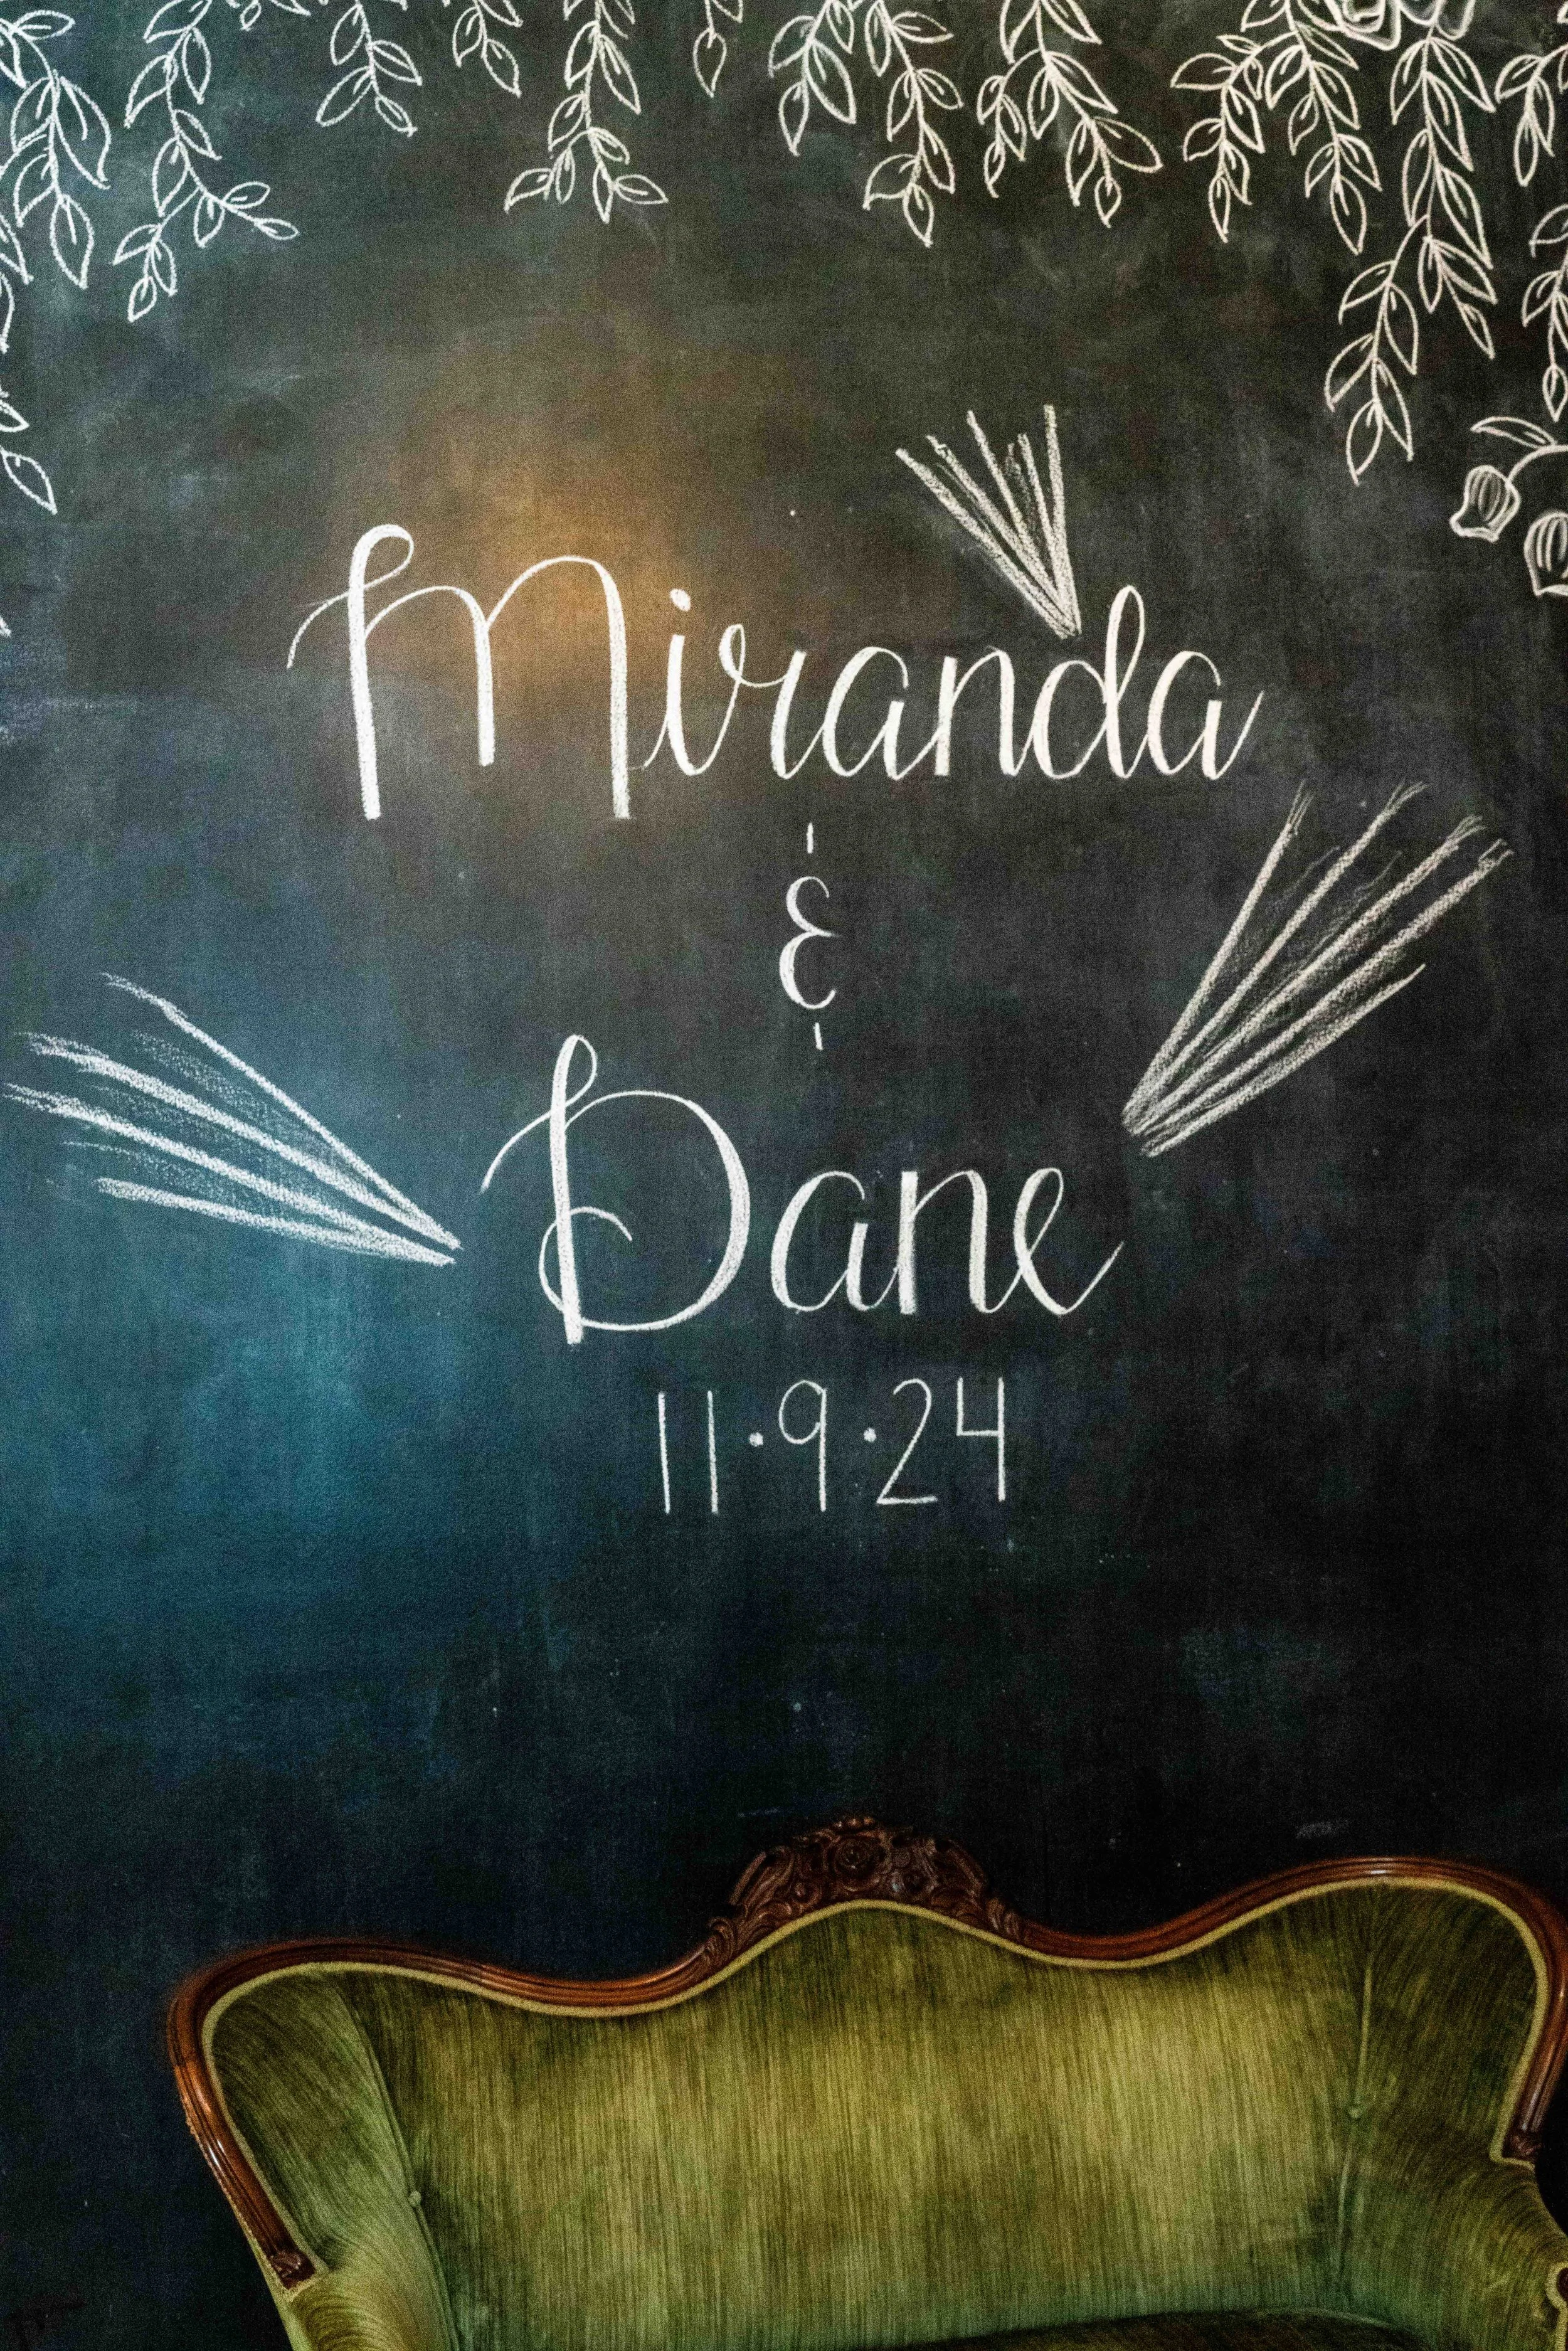 Miranda
&
Dane
11·9·24